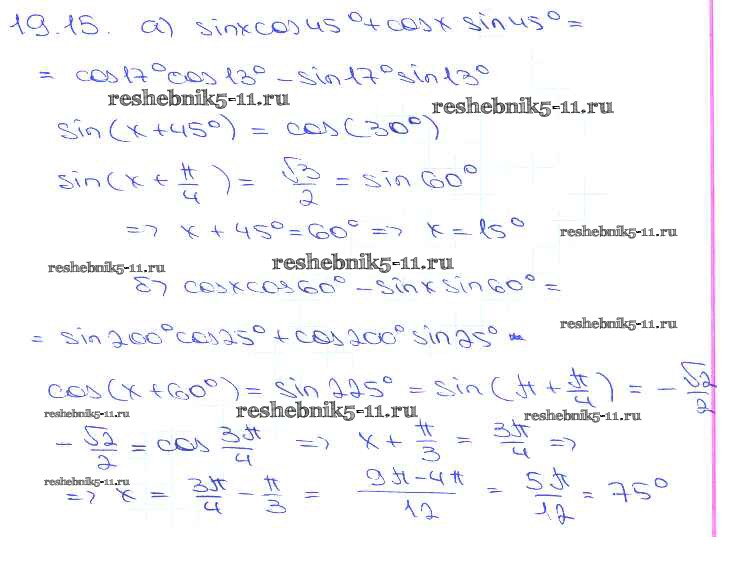 19.15. а) sinxcos45°+cosx sin45°=
= cos17°cos13° - sin17°sin13°
reshebnik5-11.ru reshebnik5-11.ru
sin(x+45°) = cos(30°)
sin(x + π/4) = √3/2 = sin 60°
=> x + 45°=60° => x = 15° reshebnik5-11.ru
reshebnik5-11.ru reshebnik5-11.ru
б) cosxcos60° - sinx sin60° =
reshebnik5-11.ru
= sin200°cos25° + cos200° sin25°
cos(x+60°) = sin 225° = sin(π + π/4) = -√2/2
reshebnik5-11.ru reshebnik5-11.ru reshebnik5-11.ru
-√2/2 = cos 3π/4 => x + π/3 = 3π/4 =>
reshebnik5-11.ru
=> x = 3π/4 - π/3 = 9π-4π/12 = 5π/12 = 75°